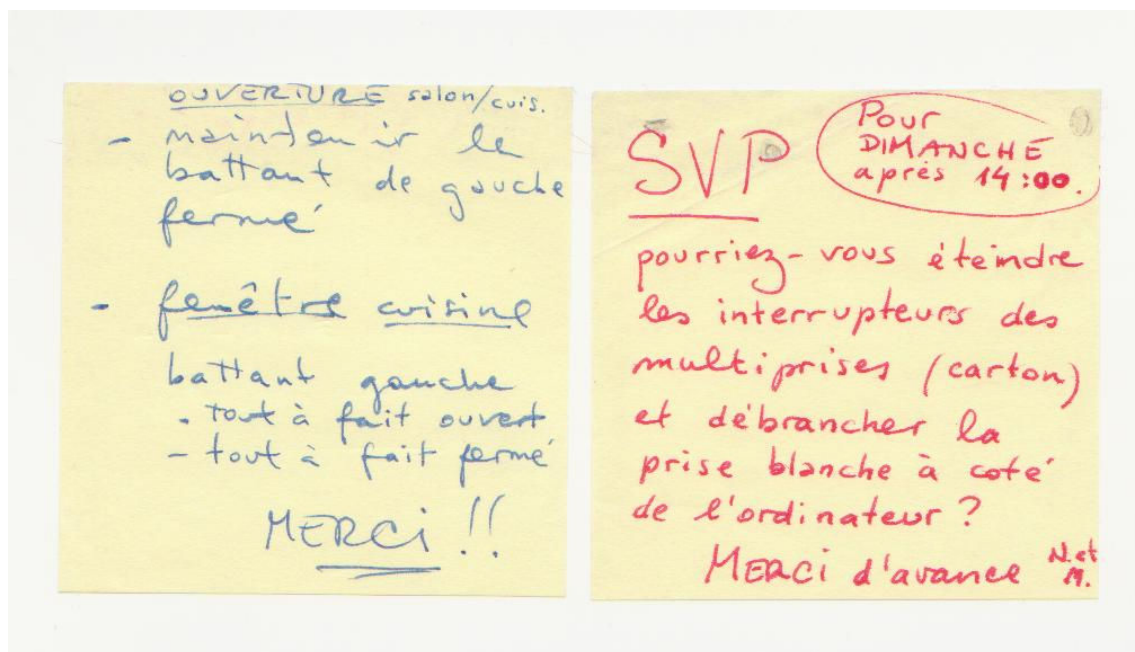 OUVERTURE salon/cuis.
- maintenir le
battant de gauche
fermé
- fenêtre cuisine
battant gauche
- tout à fait ouvert
- tout à fait fermé
MERCi !!
SVP
Pour
DIMANCHE
après 14:00.
pourriez-vous éteindre
les interrupteurs des
multiprises (carton)
et débrancher la
prise blanche à coté
de l'ordinateur ?
MERCi d'avance N. et
M.